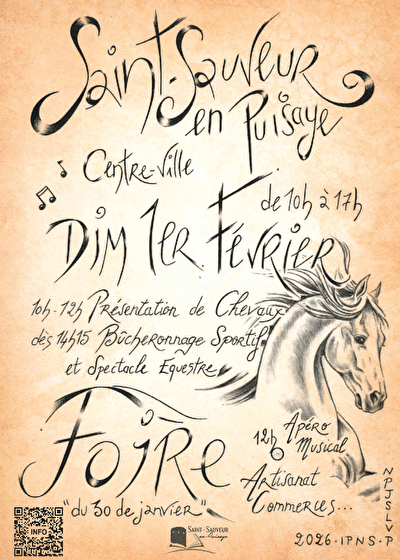 Saint-Sauveur
en Puisaye
Centre-Ville
de 10h à 17h
Dim 1er Février
10h-12h Présentation de Chevaux
dès 14h15 Bûcheronnage Sportif
et Spectacle Equestre
Foire
"du 30 de janvier"
12h Apéro
Musical
Artisanat
Commerces...
INFO
SAINT-SAUVEUR
en Puisaye
NPJSLV
2026-IPNS-P